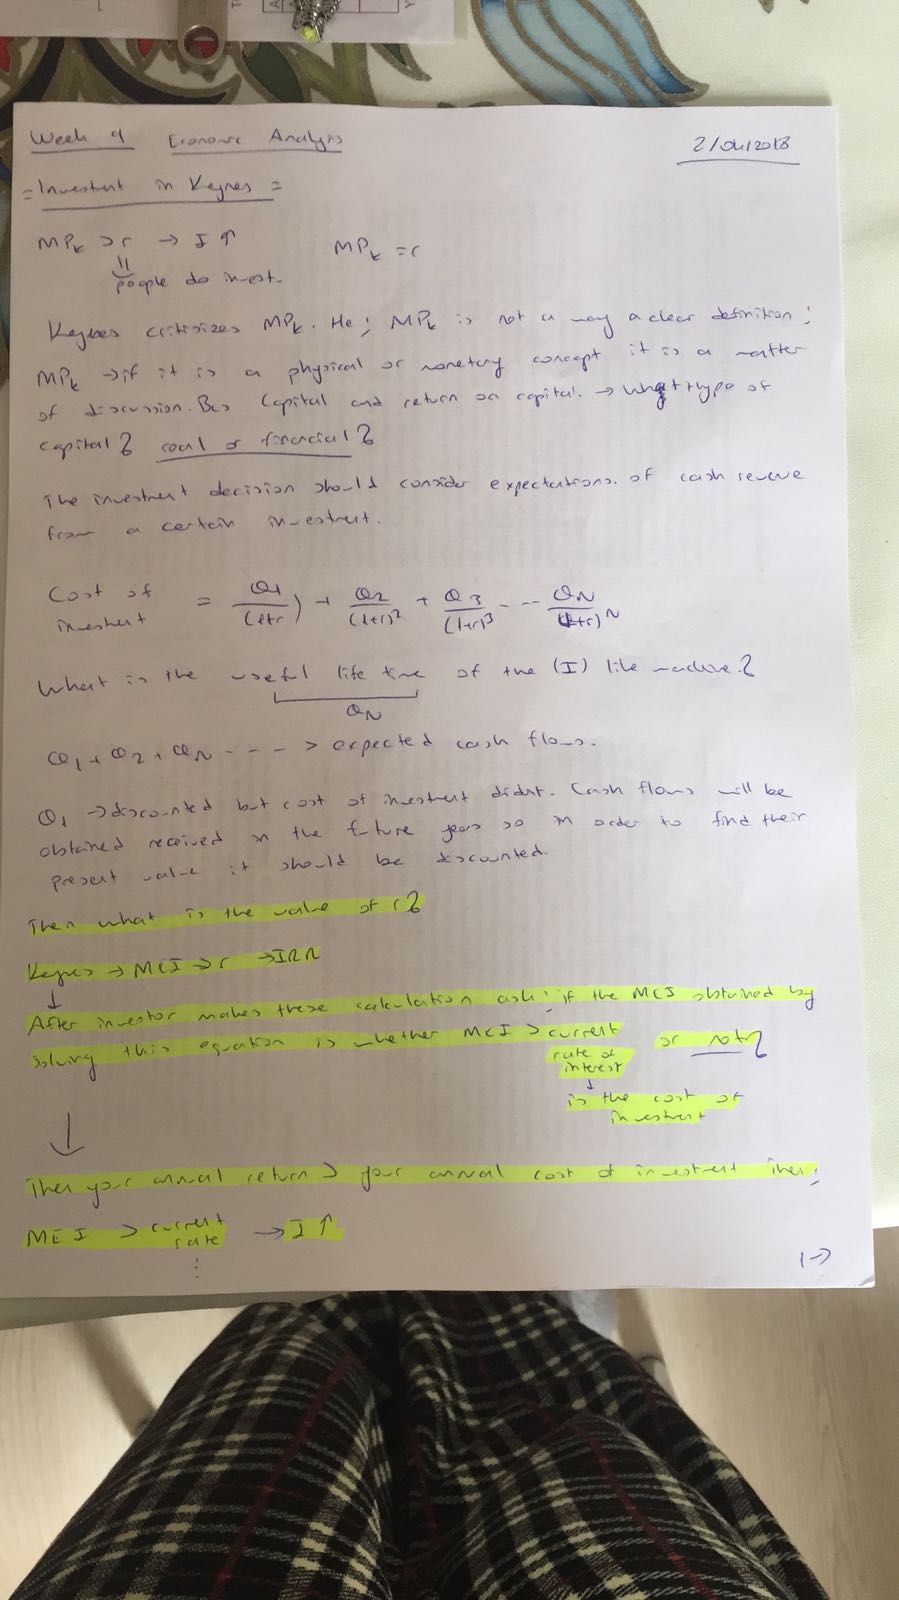 Week 9 Economic Analysis 2/04/2018
= Investment in Keynes =
MPk > r → I ↑ MPk = r
people do invest.
Keynes critisizes MPk. He; MPk is not a clear definition;
MPk → if it is a physical or monetary concept it is a matter
of discussion. Bcs Capital and return on capital. → What type of
capital? real or financial?
The investment decision should consider expectations of cash revenue
from a certain investment.
Cost of investment = Q1/(1+r) + Q2/(1+r)² + Q3/(1+r)³ --- QN/(1+r)^N
What is the useful life time of the (I) like machine?
QN
Q1 + Q2 + QN - - - - > expected cash flows.
Q1 → discounted but cost of investment didnt. Cash flows will be
obtained received in the future years so in order to find their
present value it should be discounted.
Then what is the value of r?
Keynes → MEI → r → IRR
↓
After investor makes these calculation ask; if the MEI obtained by
solving this equation is whether MEI > current rate of interest or not?
↓
is the cost of investment
↓
Then your annual return > your annual cost of investment then;
MEI > current rate → I ↑
⋮
1→